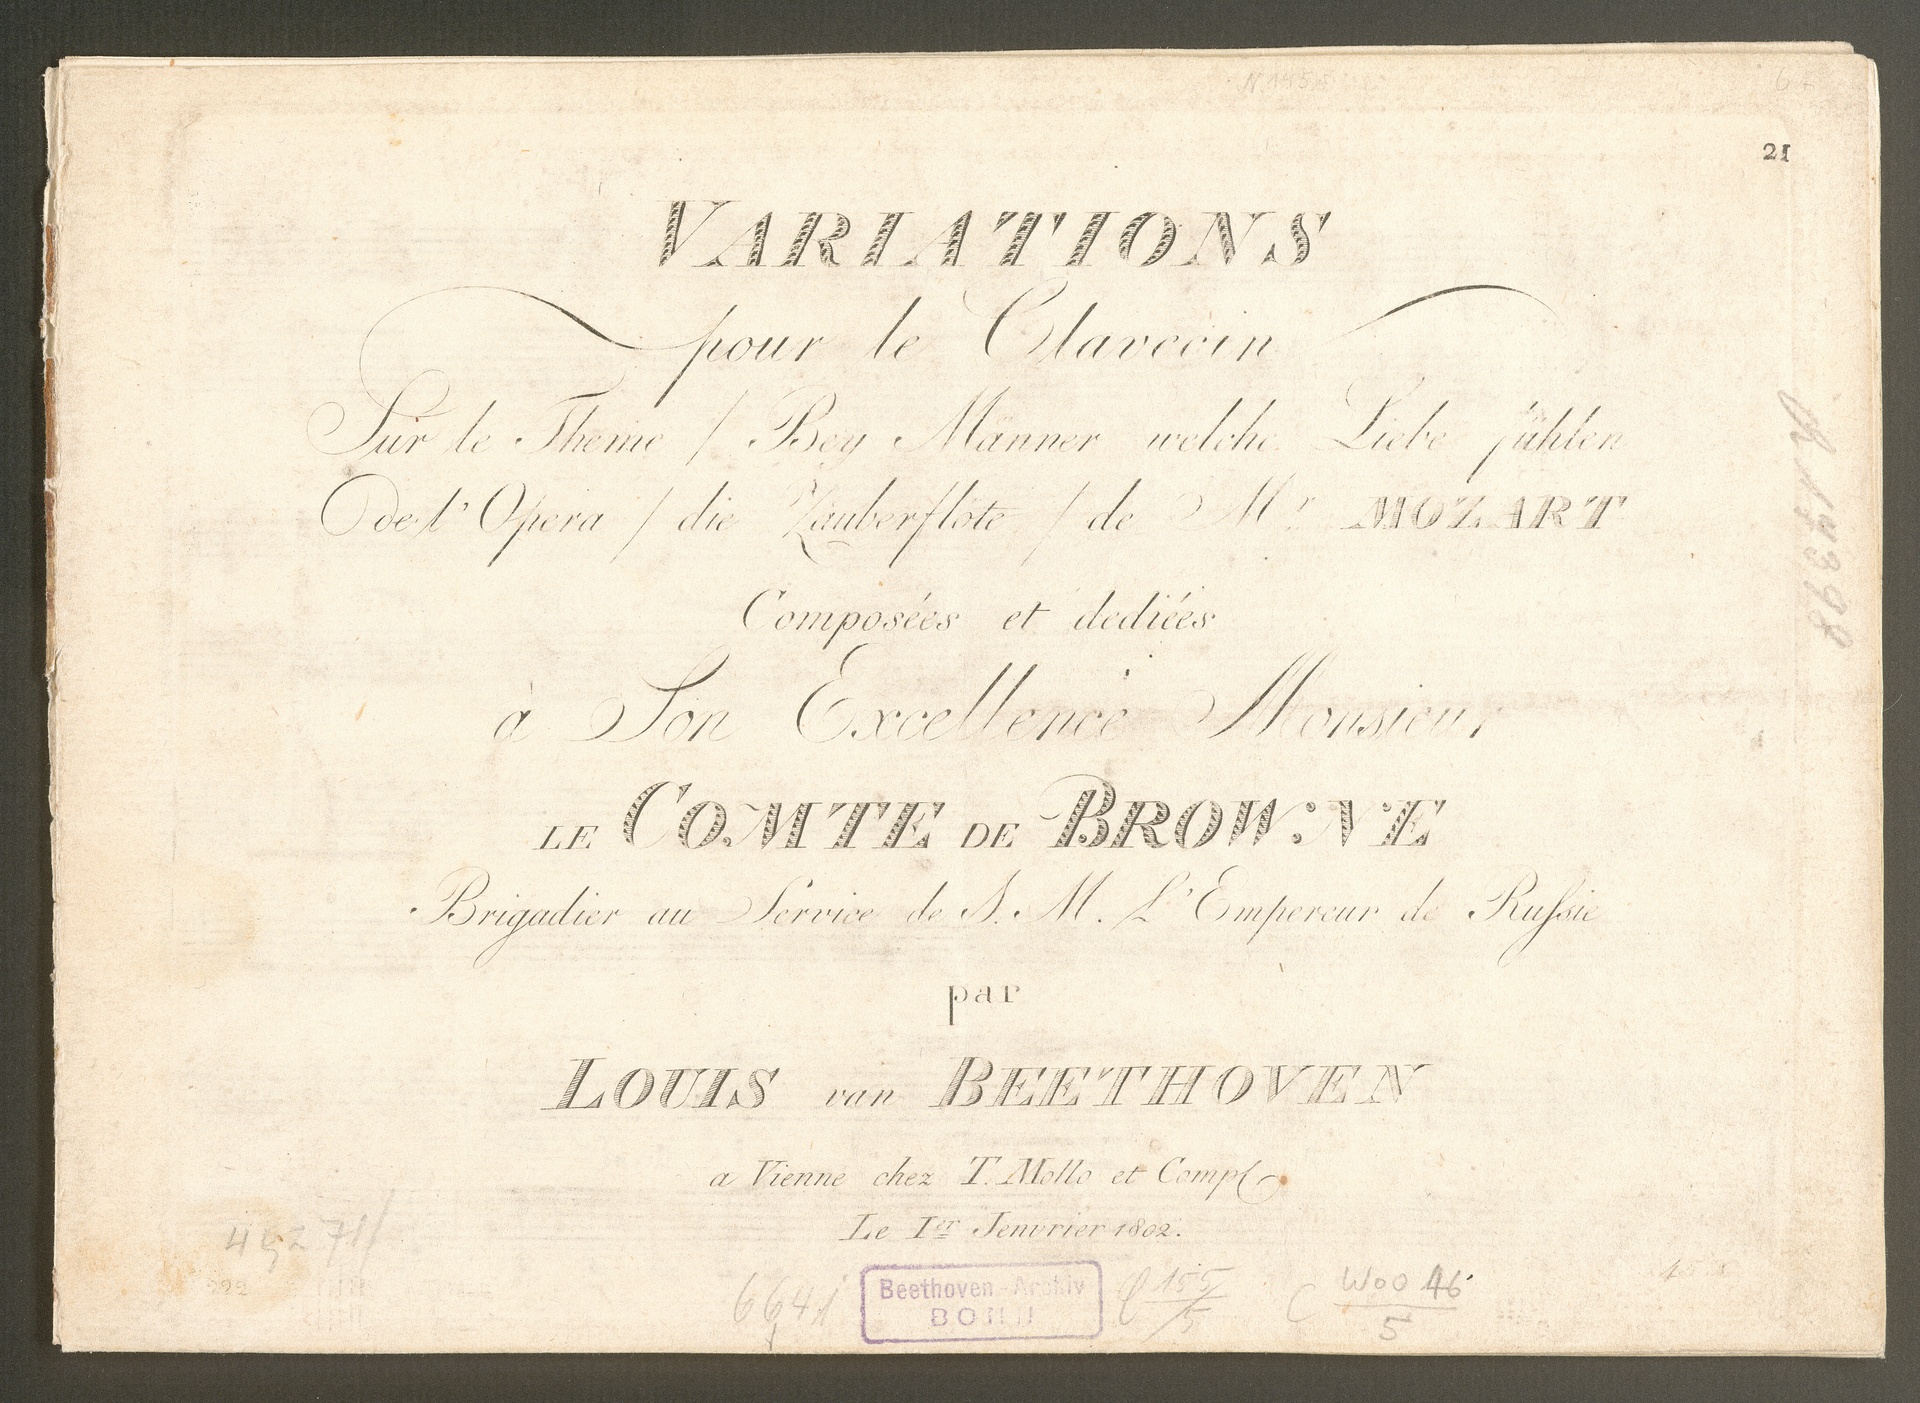 21
VARIATIONS
pour le Clavecin
Sur le Theme / Bey Männer welche Liebe fühlen
de l'Opera / die Zauberflöte / de Mr MOZART
Composées et dediées
à Son Excellence Monsieur
LE COMTE DE BROWNE
Brigadier au Service de S. M. L'Empereur de Russie
par
LOUIS van BEETHOVEN
a Vienne chez T. Mollo et Comp
Le 1er Jenvrier 1802.
Beethoven-Archiv
BONN
C 155/5
C WoO 46/5